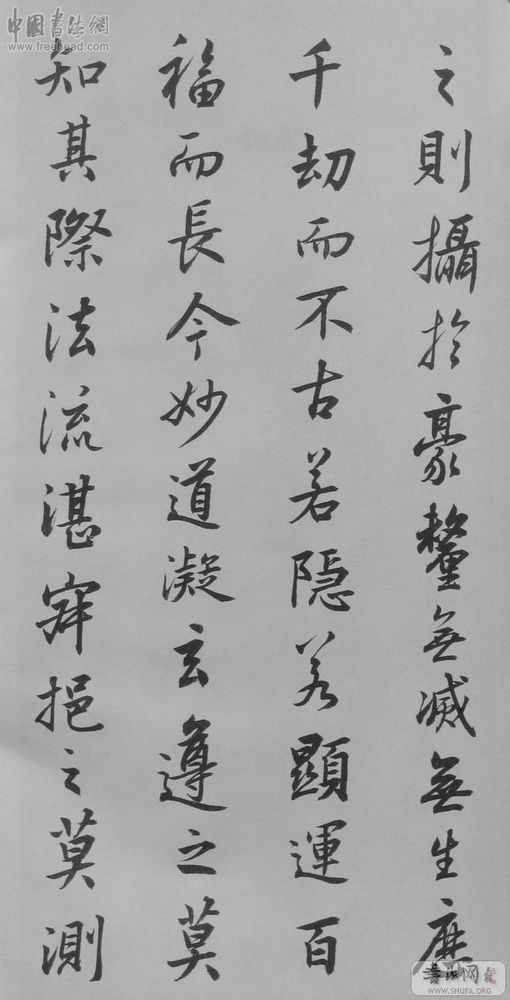 之則攝於豪氂無滅無生歷
千劫而不古若隱若顯運百
福而長今妙道凝玄遵之莫
知其際法流湛寂挹之莫測
中国書法網
www.freehead.com
書法网
WWW.SHUFA.ORG